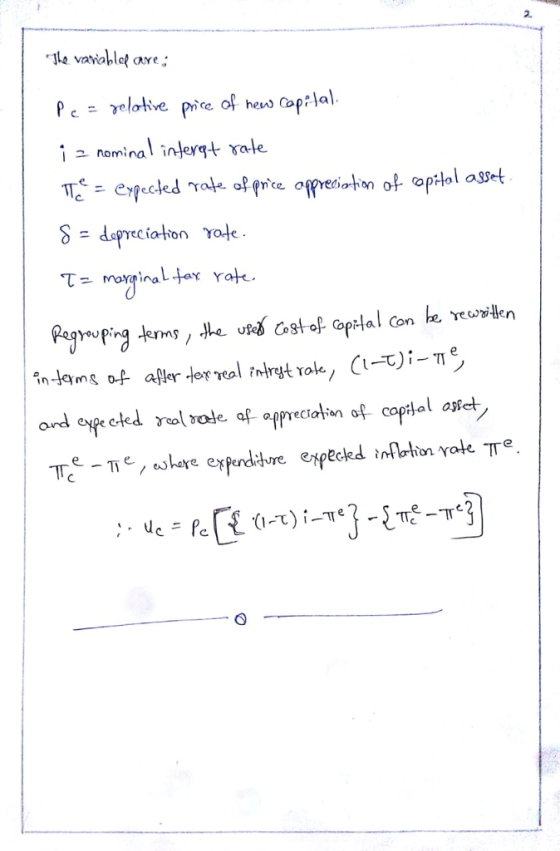 2
The variables are;
Pc = relative price of new capital.
i = nominal interest rate
πcᵉ = expected rate of price appreciation of capital asset.
δ = depreciation rate.
τ = marginal tax rate.
Regrouping terms, the used cost of capital can be rewritten
in terms of after tax real intrest rate, (1-τ)i-πᵉ,
and expected real rate of appreciation of capital asset,
πcᵉ - πᵉ, where expenditure expected inflation rate πᵉ.
∴ uc = Pc[{(1-τ)i-πᵉ}-{πcᵉ-πᵉ}]